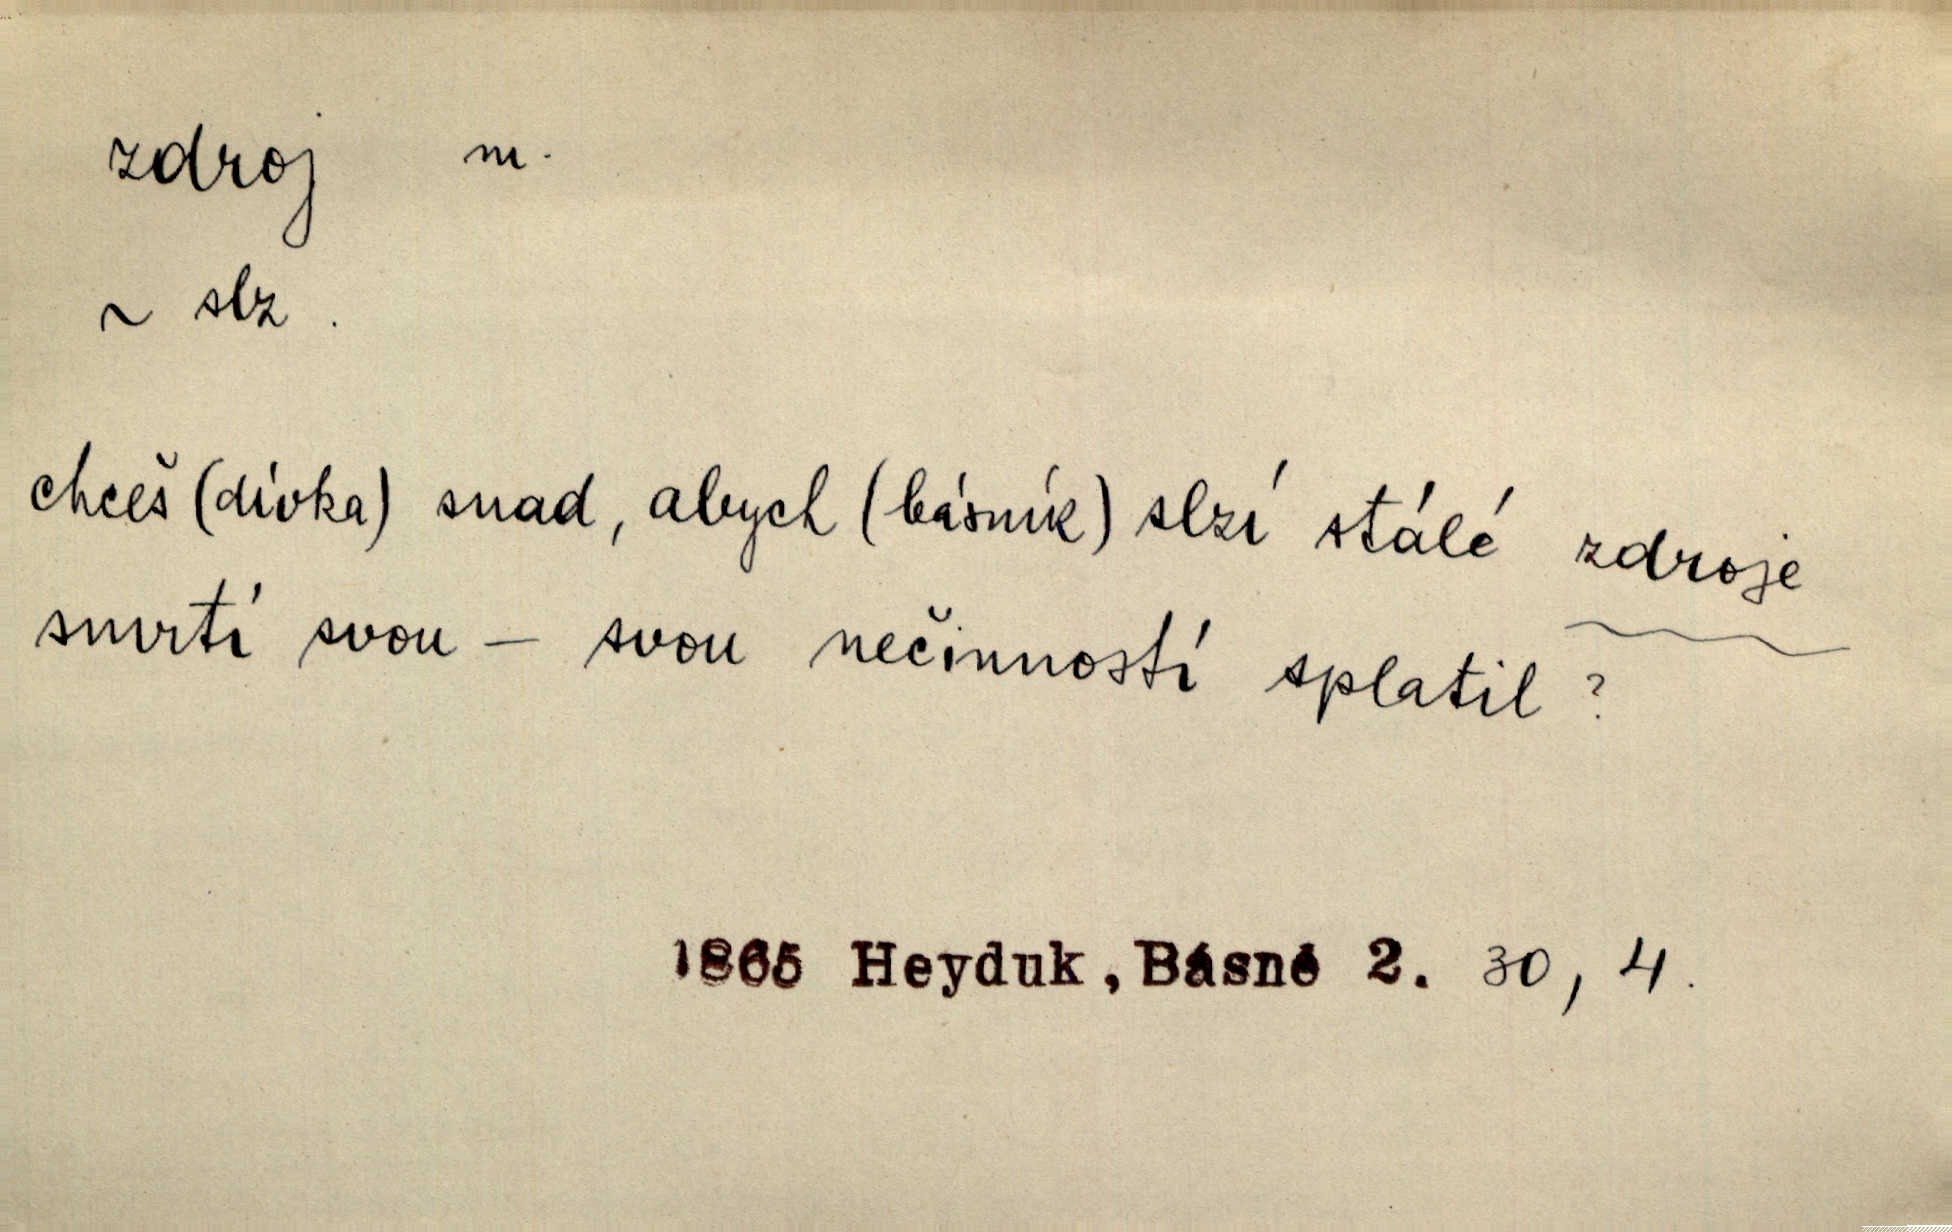 zdroj m.
~ slz.
chceš (dívka) snad, abych (básník) slzí stálé zdroje
smrtí svou – svou nečinností splatil?
1865 Heyduk, Básně 2. 30, 4.